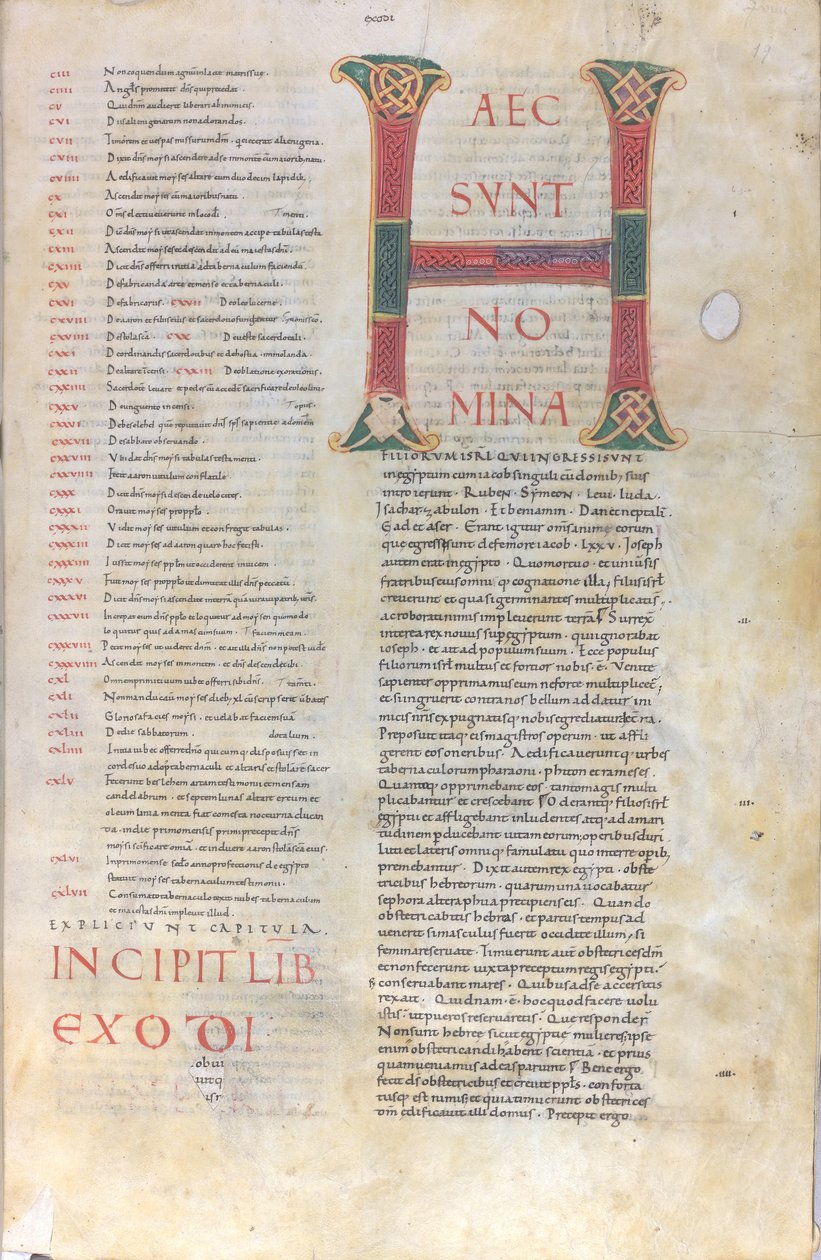 EXODI
19
CIII Non coquendum agnum in lacte matris suę.
CIIII Angl̄s promittit dn̄s qui precedat.
CV Qui dn̄m audierit liberari ab inimicis.
CVI Diis alienigenarum non adorandos.
CVII Timorem et vespas missurum dm̄. qui eiecerat alienigena.
CVIII Dixit dn̄s moysi ascendere ad se in monte cū maiorib; natu.
CVIIII Aedificavit moyses altare cum duodecim lapidib;
CX Ascendit moyses cū maioribus natu.
CXI Om̄s electi venerunt in loco di . T menti.
CXII Dicit dn̄s moysi ut ascendat in montem accipe tabulas testa
CXIII Ascendit moyses et descendit ad eū maiestas dn̄i.
CXIIII Dicit dn̄s offerri initia ad tabernaculum faciendū.
CXV De fabricanda arce et mense et tabernaculi.
CXVI De fabricarus. CXVII De oleo lucerne.
CXVIII De aaron et filiis eius et sacerdotio fungentes
CXVIIII De stola scā. CXX De veste sacerdotali.
CXXI De ordinandis sacerdotibus et de hostia immolanda.
CXXII De altare īcensi. CXXIII De oblatione exorationis.
CXXIIII Sacerdote levare et pedes cū accedent sacrificare de oleo lino
CXXV De unguento incensi. T opus.
CXXVI De beselehel quē repletavit dn̄s sp̄s sapientie ad omēm
CXXVII De sabbato observando.
CXXVIII Ubi dat dn̄s moysi tabulas testamenti.
CXXVIIII Fecit aaron vitulum conflatile.
CXXX Dicit dn̄s moysi descende velociter.
CXXXI Oravit moyses pro pplo.
CXXXII Vidit moyses vitulum et confregit tabulas.
CXXXIII Dicit moyses ad aaron quare hoc fecisti.
CXXXIIII Iussit moyses pplm̄ ut occiderent invicem.
CXXXV Fuit moyses pro pplo ut dimittat illis dn̄s peccatū.
CXXXVI Dicit dn̄s moysi ascendite in terrā quā iuravi patrib; vr̄is.
CXXXVII Increpare eun dn̄s pplo et loquitur ad moysen quomodo
loquitur quis ad amicum suum. T faciem meam.
CXXXVIII Petit moyses ut videret dn̄m. et ait illi dn̄s non potest videre
CXXXVIIII Ascendit moyses in montem. et dn̄s descendet ibi.
CXL Omne primitiuum iubet offerri sibi dn̄s. T tamti.
CXLI Non manducavit moyses dieb; xl cū scripserit v̄ba tes
CXLII Gloriosa facies moysi. et velabat faciem suā
CXLIII De die sabbatorum. dotalium.
CXLIIII Initia iubet offerre dn̄o quicumq; disposuisset in
corde suo ad op̄ tabernaculi et altaris et stolarē sacer
CXLV Fecerunt beslehem arcam testimonii et mensam
candelabrum. et septem lunas altare ęreum et
oleum linimenta fiat comesta nocturna ducan
ta. in die primo mensis primi precepit dn̄s
moysi sc̄ificare omīa. et induere aaron stola scā eius.
CXLVI In primo mense scdo anno profectionis de egypto
statuit moyses tabernaculum testimonii.
CXLVII Consumato tabernaculo texit nubes tabernaculum
et maiestas dn̄i implevit illud.
EXPLICIUNT CAPITULA.
INCIPIT LIB̄
EXODI
HAEC
SVNT
NO
MINA
FILIORVM ISRL̄ QUI INGRESSI SUNT
in egyptum cum iacob singuli cū domib; suis
introierunt. Ruben. Symeon. Levi. Iuda.
Isachar. zabulon. Et beniamin. Dan et neptali.
Gad et aser. Erant igitur om̄s anime eorum
que egresse sunt de femore iacob. LXXV. Ioseph
autem erat in egypto. Quo mortuo et universis
fratribus eius omniq; cognatione illa; filii isrl̄
creverunt et quasi germinantes multiplicati s̄;
ac roborati nimis impleverunt terrā. Surrex
interea rex novus sup egyptum. qui ignorabat
ioseph. et ait ad populum suum. Ecce populus
filiorum isrl̄ multus et fortior nobis. ē. Venite
sapienter opprimamus eum ne forte multiplicet;
et si ingruerit contra nos bellum addatur ini
micis nr̄is expugnatisq; nobis egrediatur de terra.
Preposuit itaq; eis magistros operum. ut affli
gerent eos oneribus. Aedificaveruntq; urbes
tabernaculorum pharaoni. phiton et rameses.
Quantoq; opprimebant eos. tanto magis multi
plicabantur et crescebant. Oderantq; filios isrl̄
egyptii et affligebant inludentes atq; ad amari
tudinem pducebant vitam eorum; operibus duri
luti et lateris omniq; famulatu quo in terre operib;
premebantur. Dixit autem rex egypti. obste
tricibus hebreorum. quarum una vocabatur
sephora altera phua precipiens eis. Quando
obstetricabitis hebreas. et partus tempus ad
venerit si masculus fuerit occidite illum; si
femina reservate. Timuerunt aut̄ obstetrices dm̄
et non fecerunt iuxta preceptum regis egypti.
s; conservabant mares. Quibus ad se accersitis
rex ait. Quidnam. ē. hoc quod facere volu
istis. ut pueros reservaretis. Que responder̄.
Non sunt hebree sicut egyptie mulieres; ipse
enim obstetricandi habent scientiā. et prius
quam veniamus ad eas pariunt. Bene ergo
fecit ds̄ obstetricibus et crevit ppl̄s. conforta
tusq; est nimis; et quia timuerunt obstetrices
dm̄ edificavit illi domus. Precepit ergo
.II.
.III.
.IIII.